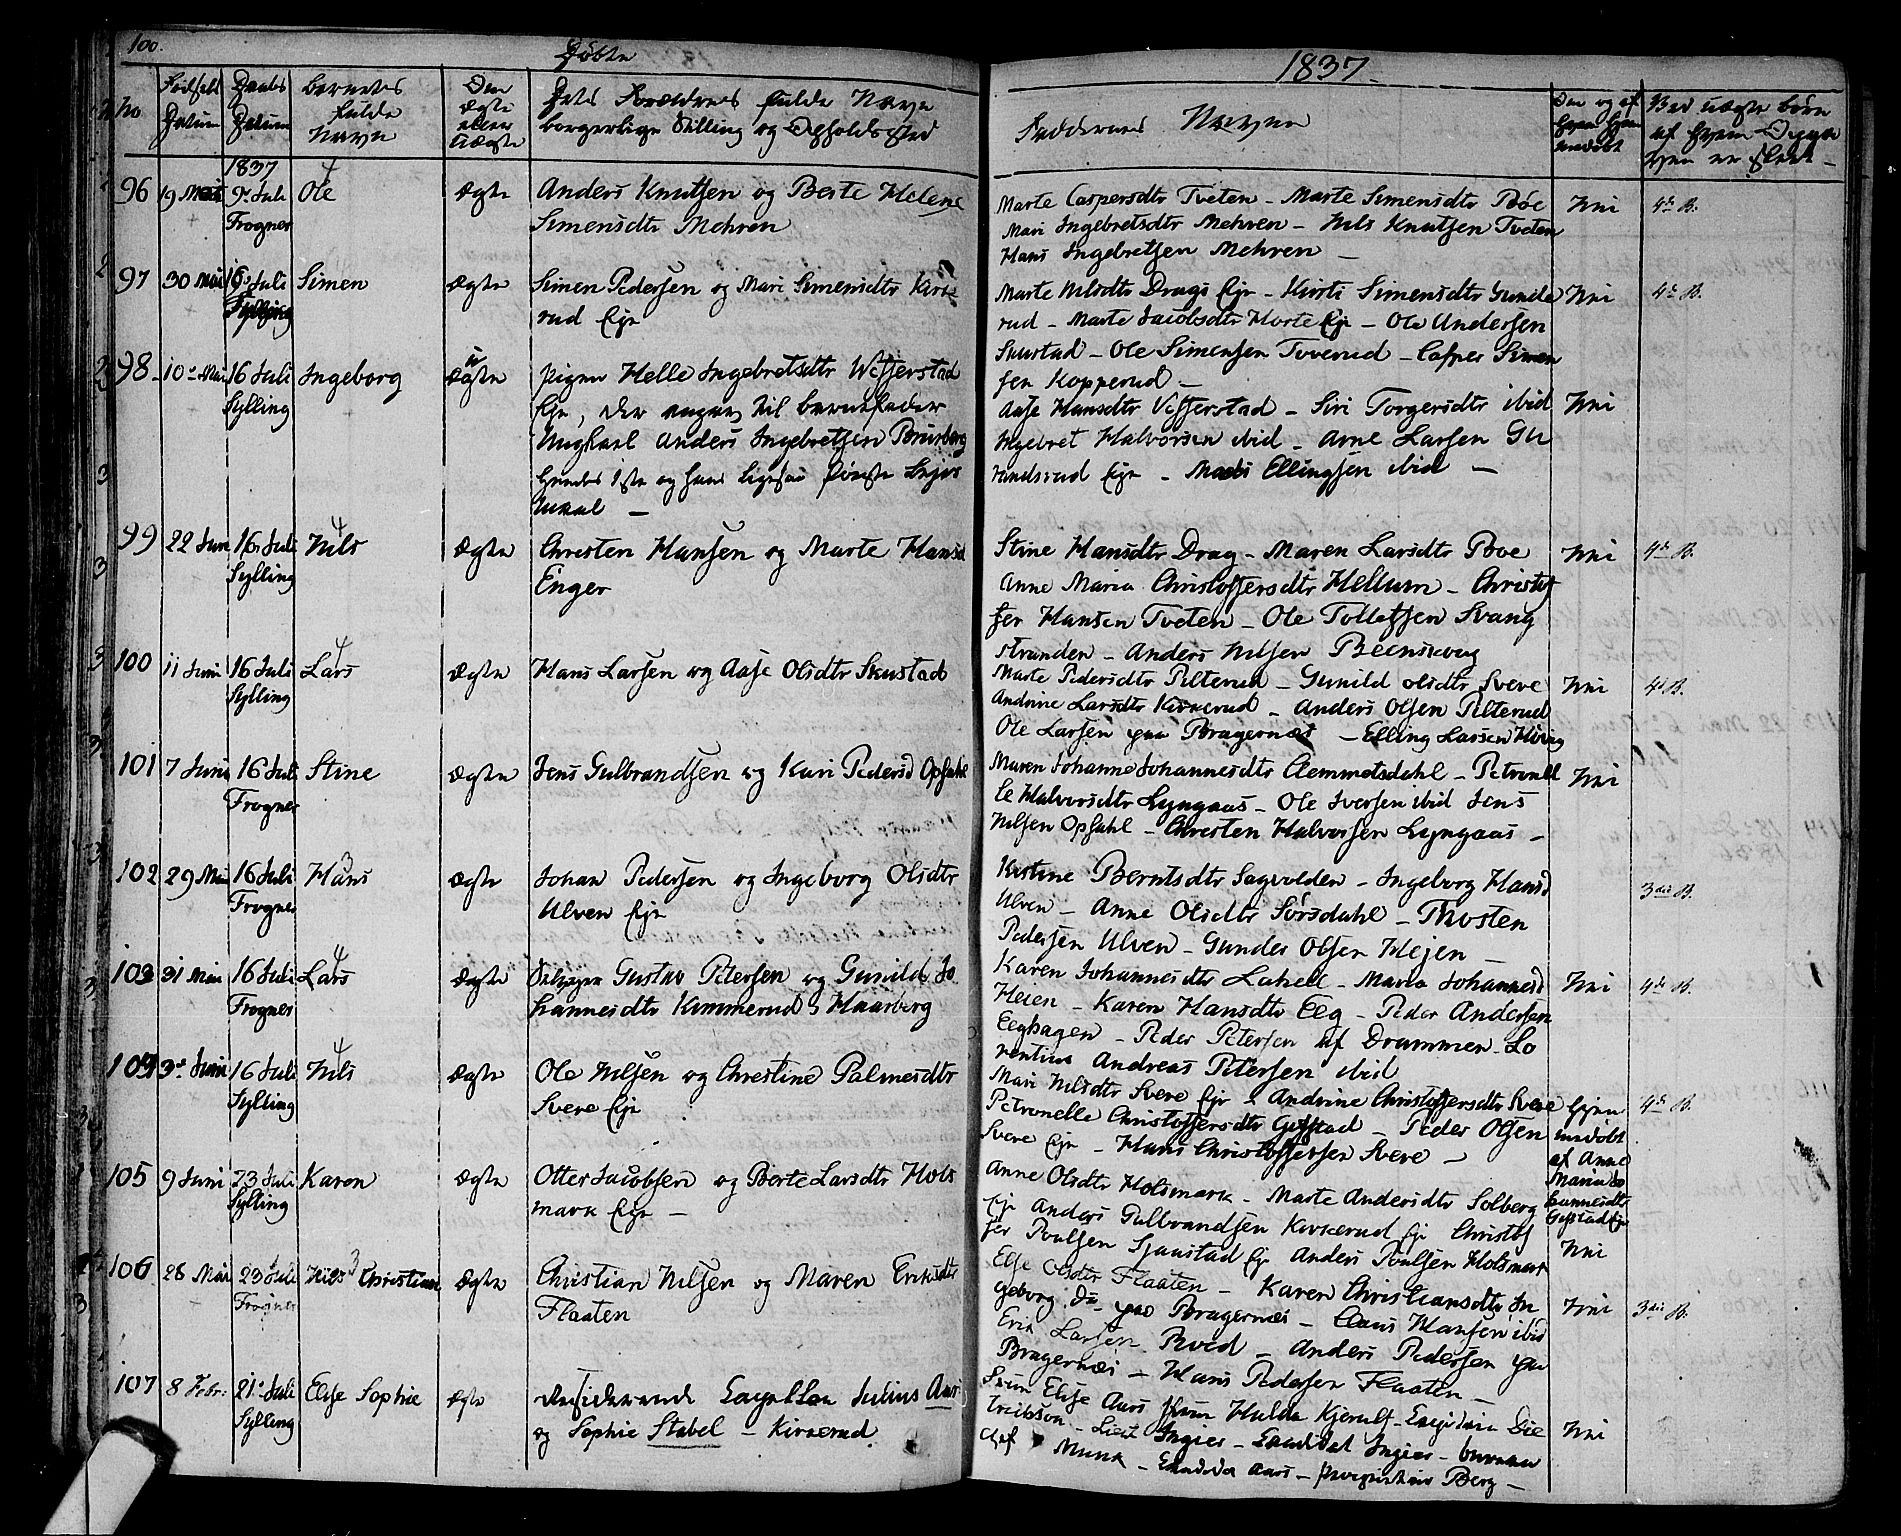 100.
Døbte
No
Fødsels Datum
Daabs Datum
Barnets fulde Navn
Den Ægte eller Uægte
Dets Forældres fulde Navn
borgerlige Stilling og Opholdssted
1837
96 19 Mai 9de Juli Frogner
Ole
Ægte
Anders Knutsen og Berte Helene
Simensdtr Mehren
97 30 Mai 16 Juli Sylling
Simen
Ægte
Simen Pedersen og Mari Simensdtr Kirke
rud Eje
98 10de Mai 16 Juli Sylling
Ingeborg
uægte
Pigen Helle Ingebretsdtr Wefferstad
Eje, der angav til barnefader
Ungkarl Anders Ingebretsen Brusberg
hendes 1ste og hans ligesaa første Lejer
maal –
99 22 Juni 16 Juli Sylling
Nils
Ægte
Christen Hansen og Marte Hansd
Enger
100 11 Juni 16 Juli Sylling
Lars
Ægte
Hans Larsen og Aase Olsdtr Skustad
101 7 Juni 16 Juli Frogner
Stine
Ægte
Jens Gulbrandsen og Kari Pedersd Opsahl
102 29 Mai 16 Juli Frogner
Hans
Ægte
Johan Pedersen og Ingeborg Olsdtr
Ulven Eje
103 31 Mai 16 Juli Frogner
Lars
Ægte
Gustav Petersen og Gunild Jo
hannesdtr Kimmerud Haarberg
104 3de Juni 16 Juli Sylling
Nils
Ægte
Ole Nilsen og Christine Palmesdtr
Svere Eje
105 9 Juni 23 Juli Sylling
Karen
Ægte
Otter Jacobsen og Berte Larsdtr Hols
mark Eje –
106 28 Mai 23 Juli Frogner
Nils Christian
Ægte
Christian Nilsen og Maren Eriksdtr
Flaaten
107 8 Febr: 21de Juli Sylling
Else Sophie
Ægte
Residerende Capellan Julius Aars
og Sophie Stabel – Kirkerud
1837
Faddernes Navne
Den og af hvem hjemmedøbt
Ved uægte børn
Marte Caspersdtr Tveten – Marte Simensdtr Bøe
Mari Ingebretsdtr Mehren – Nils Knutsen Tveten
Hans Ingebretsen Mehren –
Nei
4de B.
Marte Nilsdtr Drags Eje – Kirsti Simensdtr Gunde
rud – Marte Jacobsdtr Horte Eje – Ole Andersen
Skustad – Ole Simensen Tverud – Casper Simen
sen Kopperud –
Nei
4de B.
Aase Hansdtr Vefferstad – Siri Torgersdtr ibid
Ingebret Halvorsen ibid – Arne Larsen Gu
randsrud Eje – Mads Ellingsen ibid –
Nei
Stine Hansdtr Drag – Maren Larsdtr Bøe
Anne Maria Christoffersdtr Hellum – Christof
fer Hansen Tveten – Ole Tollefsen Svang
stranden – Anders Nilsen Beenskoug
Nei
4de B.
Marte Pedersdtr Pilterud – Gunild Olsdtr Svere
Andrine Larsdtr Kirkerud – Anders Olsen Pilterud
Ole Larsen paa Bragernæs – Elling Larsen Hving
Nei
4de B.
Maren Johanne Johannesdtr Clemmetsdahl – Petronel
le Halvorsdtr Lyngaas – Ole Iversen ibid Jens
Nilsen Opsahl – Christen Halvorsen Lyngaas –
Nei
Kirstine Berntsdtr Sagvolden – Ingeborg Hansd
Ulven – Anne Olsdtr Sørsdahl – Thosten
Pedersen Ulven – Gunder Olsen Hejen –
3die B.
Karen Johannesdtr Lahell – Maria Johannesd
Heien – Karen Hansdtr Eeg – Peder Andersen
Eeghagen – Peder Petersen af Drammen – Lo
rentius Andreas Petersen ibid
Nei
4de B.
Mari Nilsdtr Svere Eje – Andrine Christoffersdtr Svere
Petronelle Christoffersdtr Gifstad – Peder Olsen
Svere Eje – Hans Christoffersen Svere –
hjem
medøbt
af Anne
Maria Jo
hannesdtr
Gifstad Eje
4de B.
Anne Olsdtr Holsmark – Marte Andersdtr Solberg
Eje Anders Gulbrandsen Kirkerud Eje Christof
fer Poulsen Sjaastad Eje Anders Poulsen Holsmark
Nei
Else Olsdtr Flaaten – Karen Christiansdtr In
geborg do paa Bragernæs – Claus Hansen ibid
Erik Larsen Bved – Anders Pedersen paa
Bragernæs – Hans Pedersen Flaaten –
Nei
3die B.
Fru Elise Aars Fru Hulda Kjerulf – Capitain Die
trichson – Lieut Ingier – Candidat Ingier –
Munk – Candidat Aars – Berg –
Nei